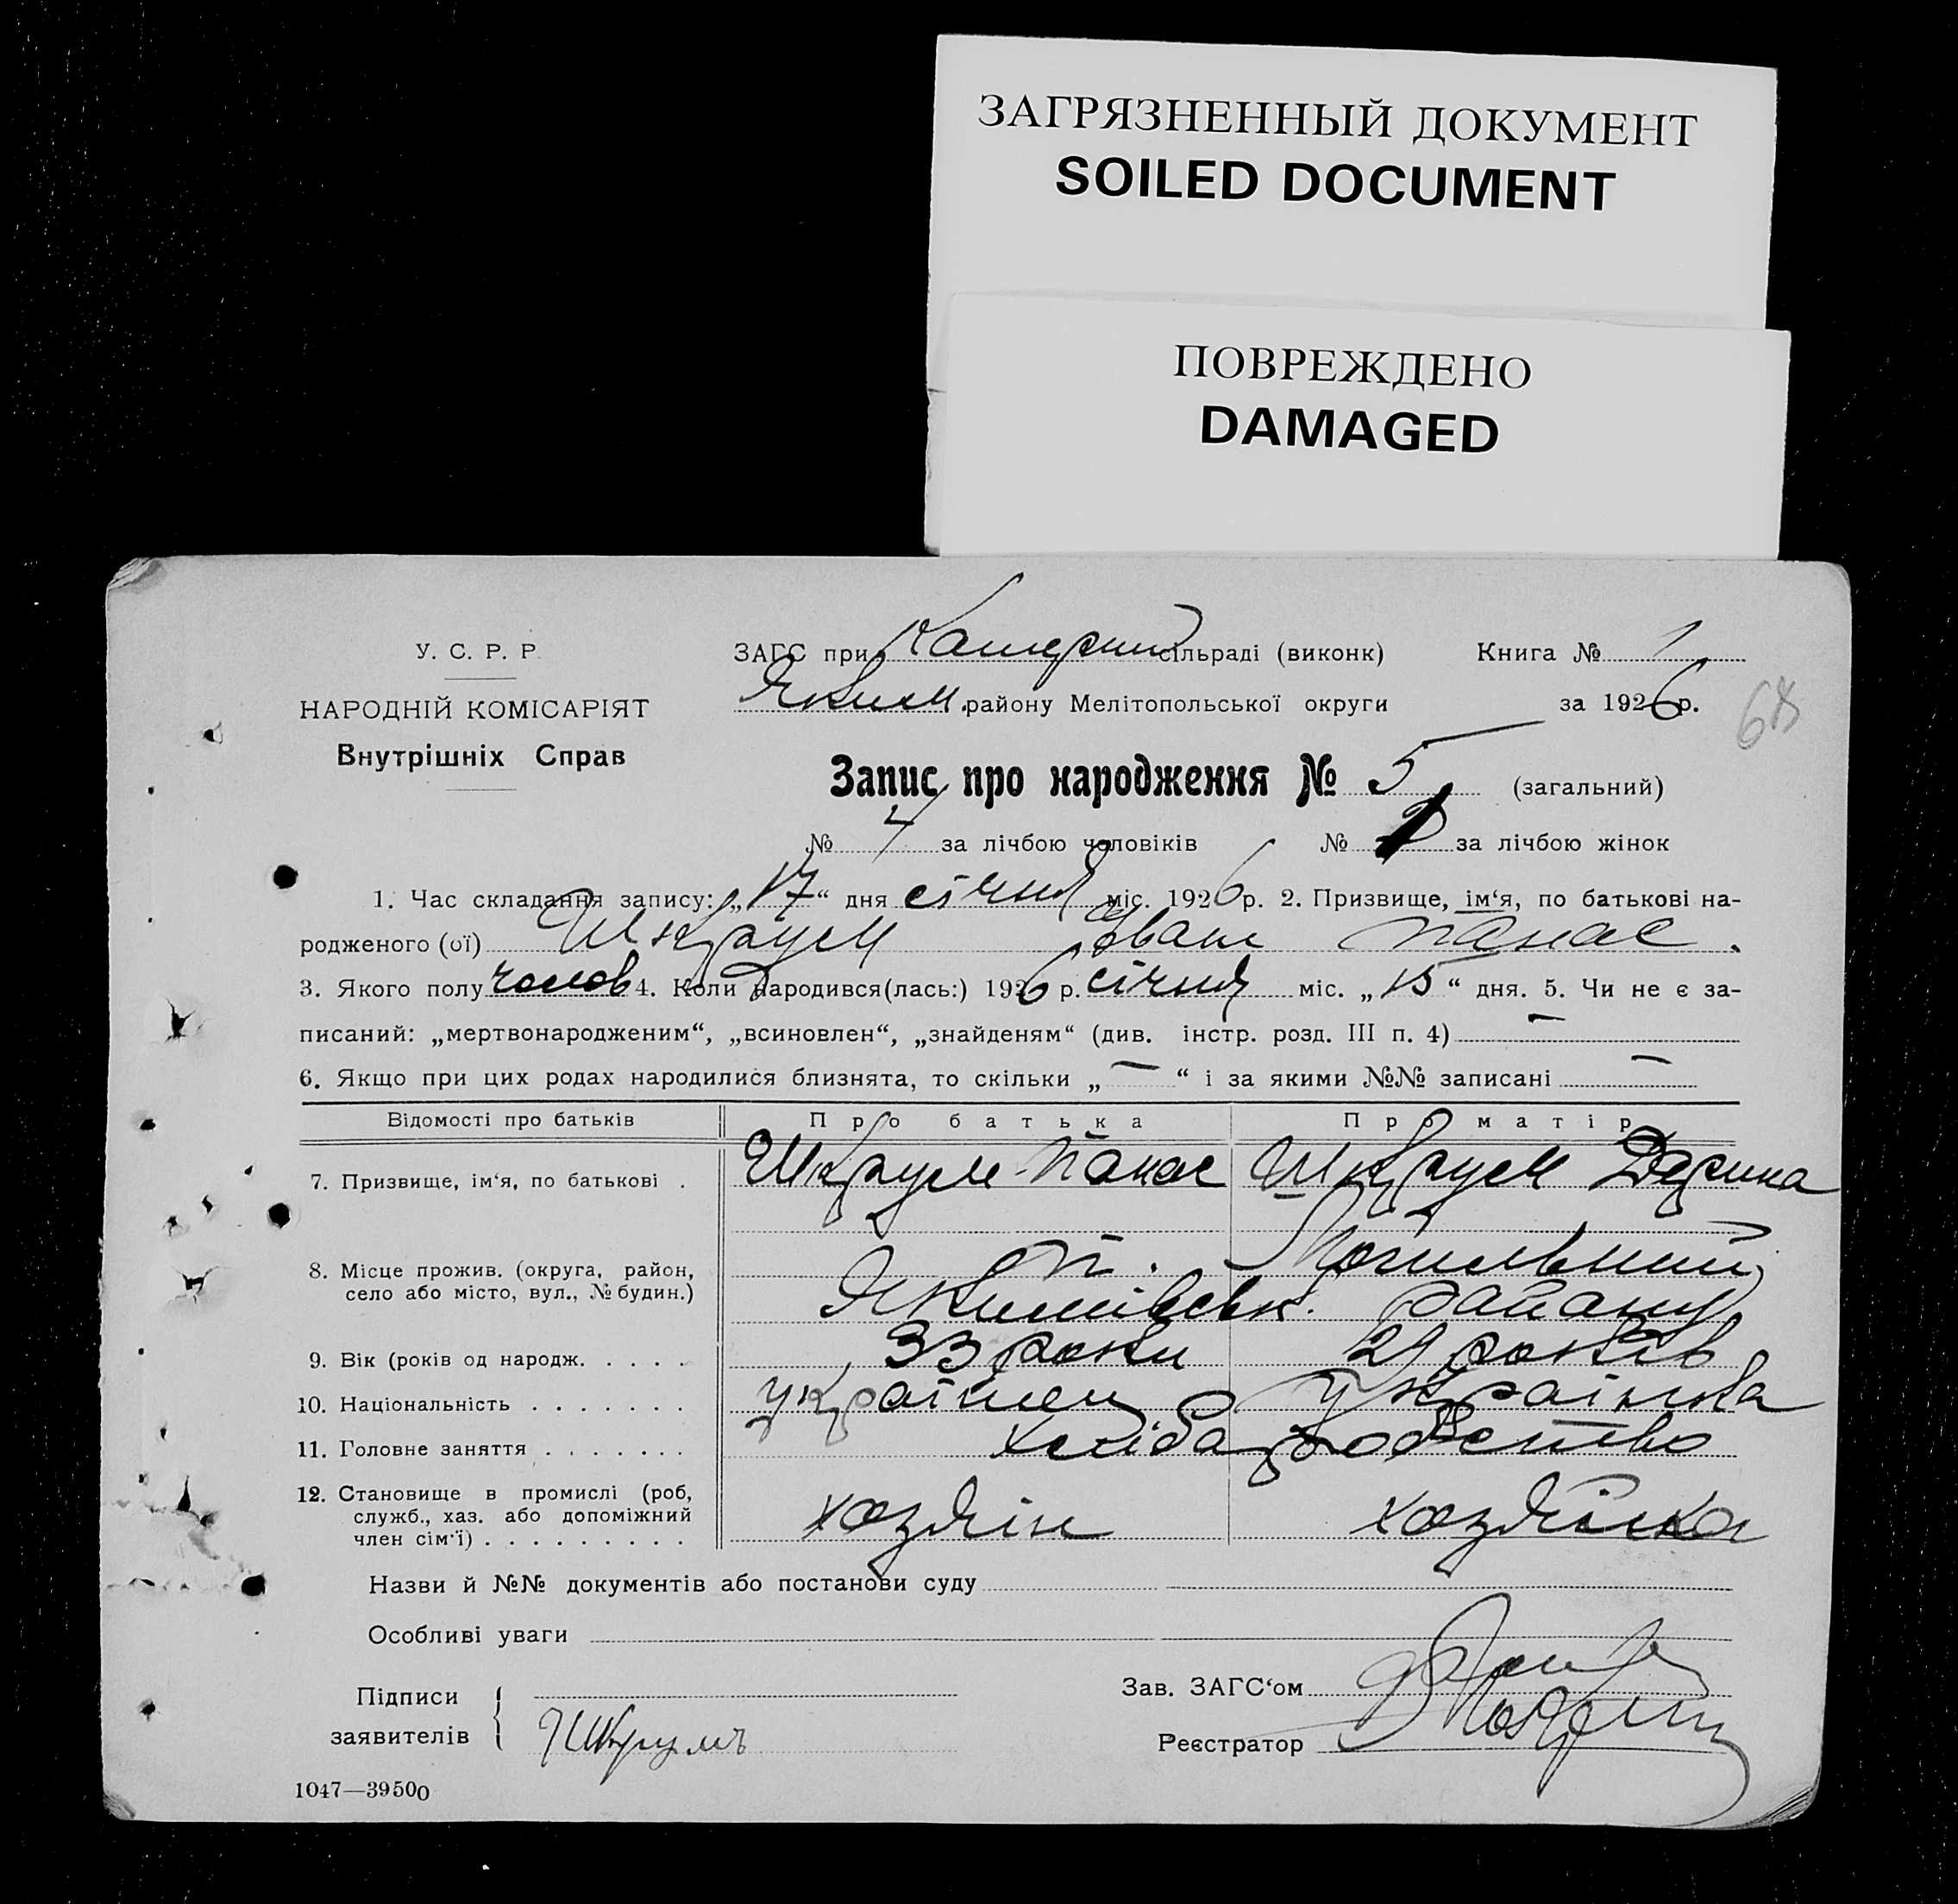 ЗАГРЯЗНЕННЫЙ ДОКУМЕНТ
SOILED DOCUMENT
ПОВРЕЖДЕНО
DAMAGED
У. С. Р. Р
НАРОДНІЙ КОМІСАРІЯТ
Внутрішніх Справ
ЗАГС при Катерин сільраді (виконк) Книга № 1
Яким. району Мелітопольської округи за 1926 р.
68
Запис про народження № 5 (загальний)
№ 4 за лічбою чоловіків № за лічбою жінок
1. Час складання запису: „17“ дня січня міс. 1926 р. 2. Призвище, ім‘я, по батькові на-
родженого (ої) Шкрум Іван Панас.
3. Якого полу чолов 4. Коли народився(лась:) 1926 р. січня міс. „15“ дня. 5. Чи не є за-
писаний: „мертвонародженим“, „всиновлен“, „знайденям“ (див. інстр. розд. III п. 4) —
6. Якщо при цих родах народилися близнята, то скільки „—“ і за якими №№ записані —
Відомості про батьків Про батька Про матір
7. Призвище, ім‘я, по батькові . Шкрум Панас Шкрум Дарина
8. Місце прожив. (округа, район, село або місто, вул., № будин.)
Якимівськ. району
9. Вік (років од народж. . . . . 33 роки 29 років
10. Національність . . . . . . . українец Українка
11. Головне заняття . . . . . . . хлібаробство
12. Становище в промислі (роб, служб., хаз. або допоміжний член сім‘ї) . . . . . . . . . хозяін хозяйка
Назви й №№ документів або постанови суду
Особливі уваги
Підписи
заявителів Шкрумъ
Зав. ЗАГС‘ом
Реєстратор
1047—39500